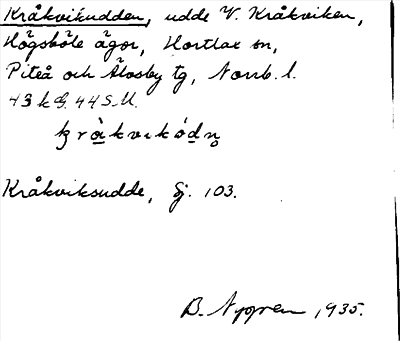 Kråkvikudden, udde V. Kråkviken,
Högsböle ägor, Hortlax sn,
Piteå och Älvsby tg, Norrb. l.
43 k G. 44 S.U.
Kråkviksudde, Gj. 103.
B. Nygren 1935.